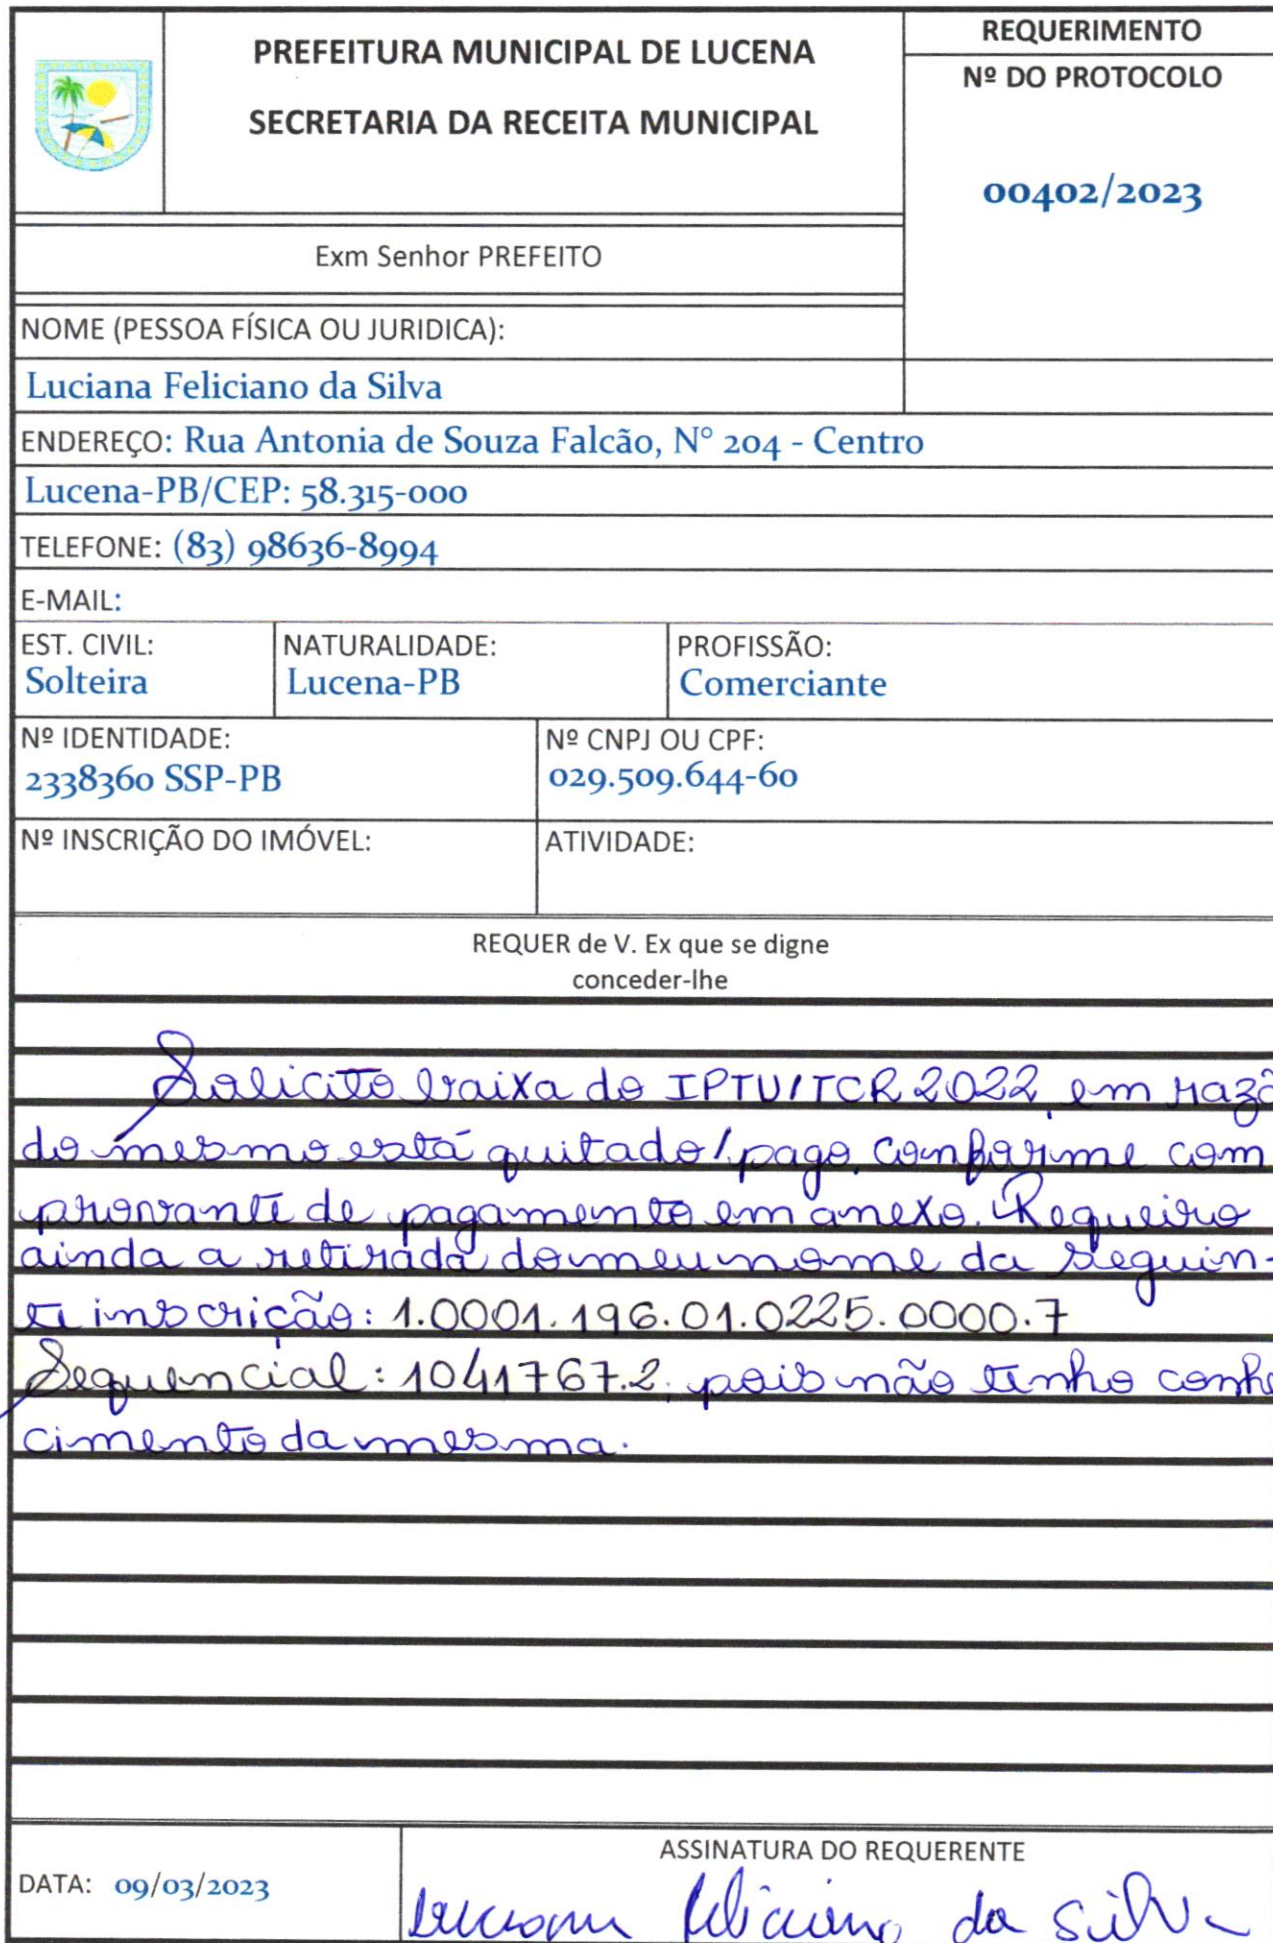 PREFEITURA MUNICIPAL DE LUCENA
SECRETARIA DA RECEITA MUNICIPAL
REQUERIMENTO
Nº DO PROTOCOLO
00402/2023
Exm Senhor PREFEITO
NOME (PESSOA FÍSICA OU JURIDICA):
Luciana Feliciano da Silva
ENDEREÇO: Rua Antonia de Souza Falcão, N° 204 - Centro
Lucena-PB/CEP: 58.315-000
TELEFONE: (83) 98636-8994
E-MAIL:
EST. CIVIL:
Solteira
NATURALIDADE:
Lucena-PB
PROFISSÃO:
Comerciante
Nº IDENTIDADE:
2338360 SSP-PB
Nº CNPJ OU CPF:
029.509.644-60
Nº INSCRIÇÃO DO IMÓVEL:
ATIVIDADE:
REQUER de V. Ex que se digne
conceder-lhe
Solicito baixa do IPTU/TCR 2022, em razã
do mesmo está quitado/pago, conforme com
provante de pagamento em anexo. Requeiro
ainda a retirada do meu nome da seguin-
te inscrição: 1.0001.196.01.0225.0000.7
Sequencial: 1041767.2, pois não tenho conhe
cimento da mesma.
DATA: 09/03/2023
ASSINATURA DO REQUERENTE
Luciana Feliciano da Silva